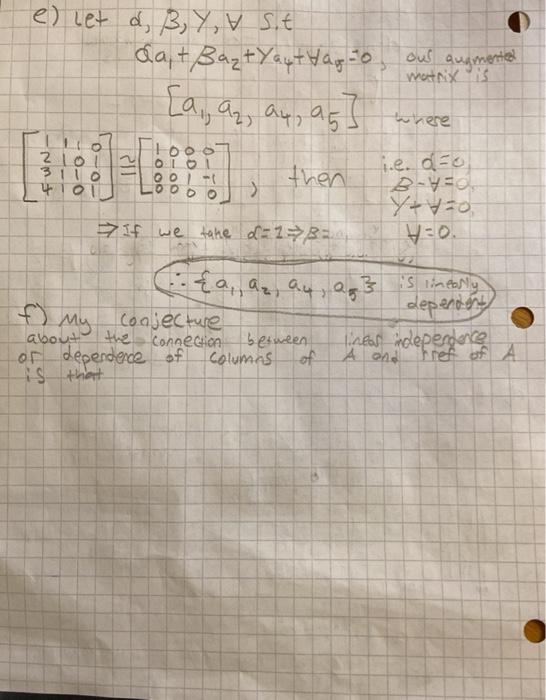 e) Let α, β, γ, ∀ s.t
αa₁ + βa₂ + γa₄ + ∀a₅ = 0, our augmented matrix is
[a₁, a₂, a₄, a₅] where
[1 1 1 0
2 1 0 1
3 1 1 0
4 1 0 1] ≅ [1 0 0 0
0 1 0 1
0 0 1 -1
0 0 0 0], then
i.e. α=0,
β-∀=0,
γ+∀=0,
∀=0.
⇒ If we take α=1 ⇒ β=
∴ {a₁, a₂, a₄, a₅} is linearly dependent
f) My conjecture
about the connection between linear independence
or dependence of columns of A and rref of A
is that